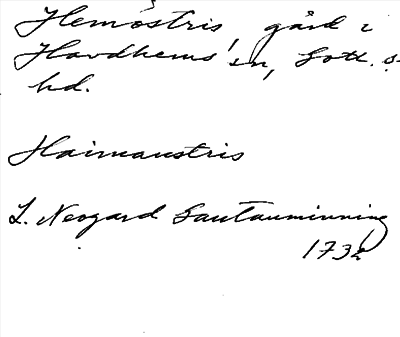 Hemöstris, gård i
Havdhems sn, Gotl. s.
hd.
Haimaustris
L. Neogard Gautauminning
1732